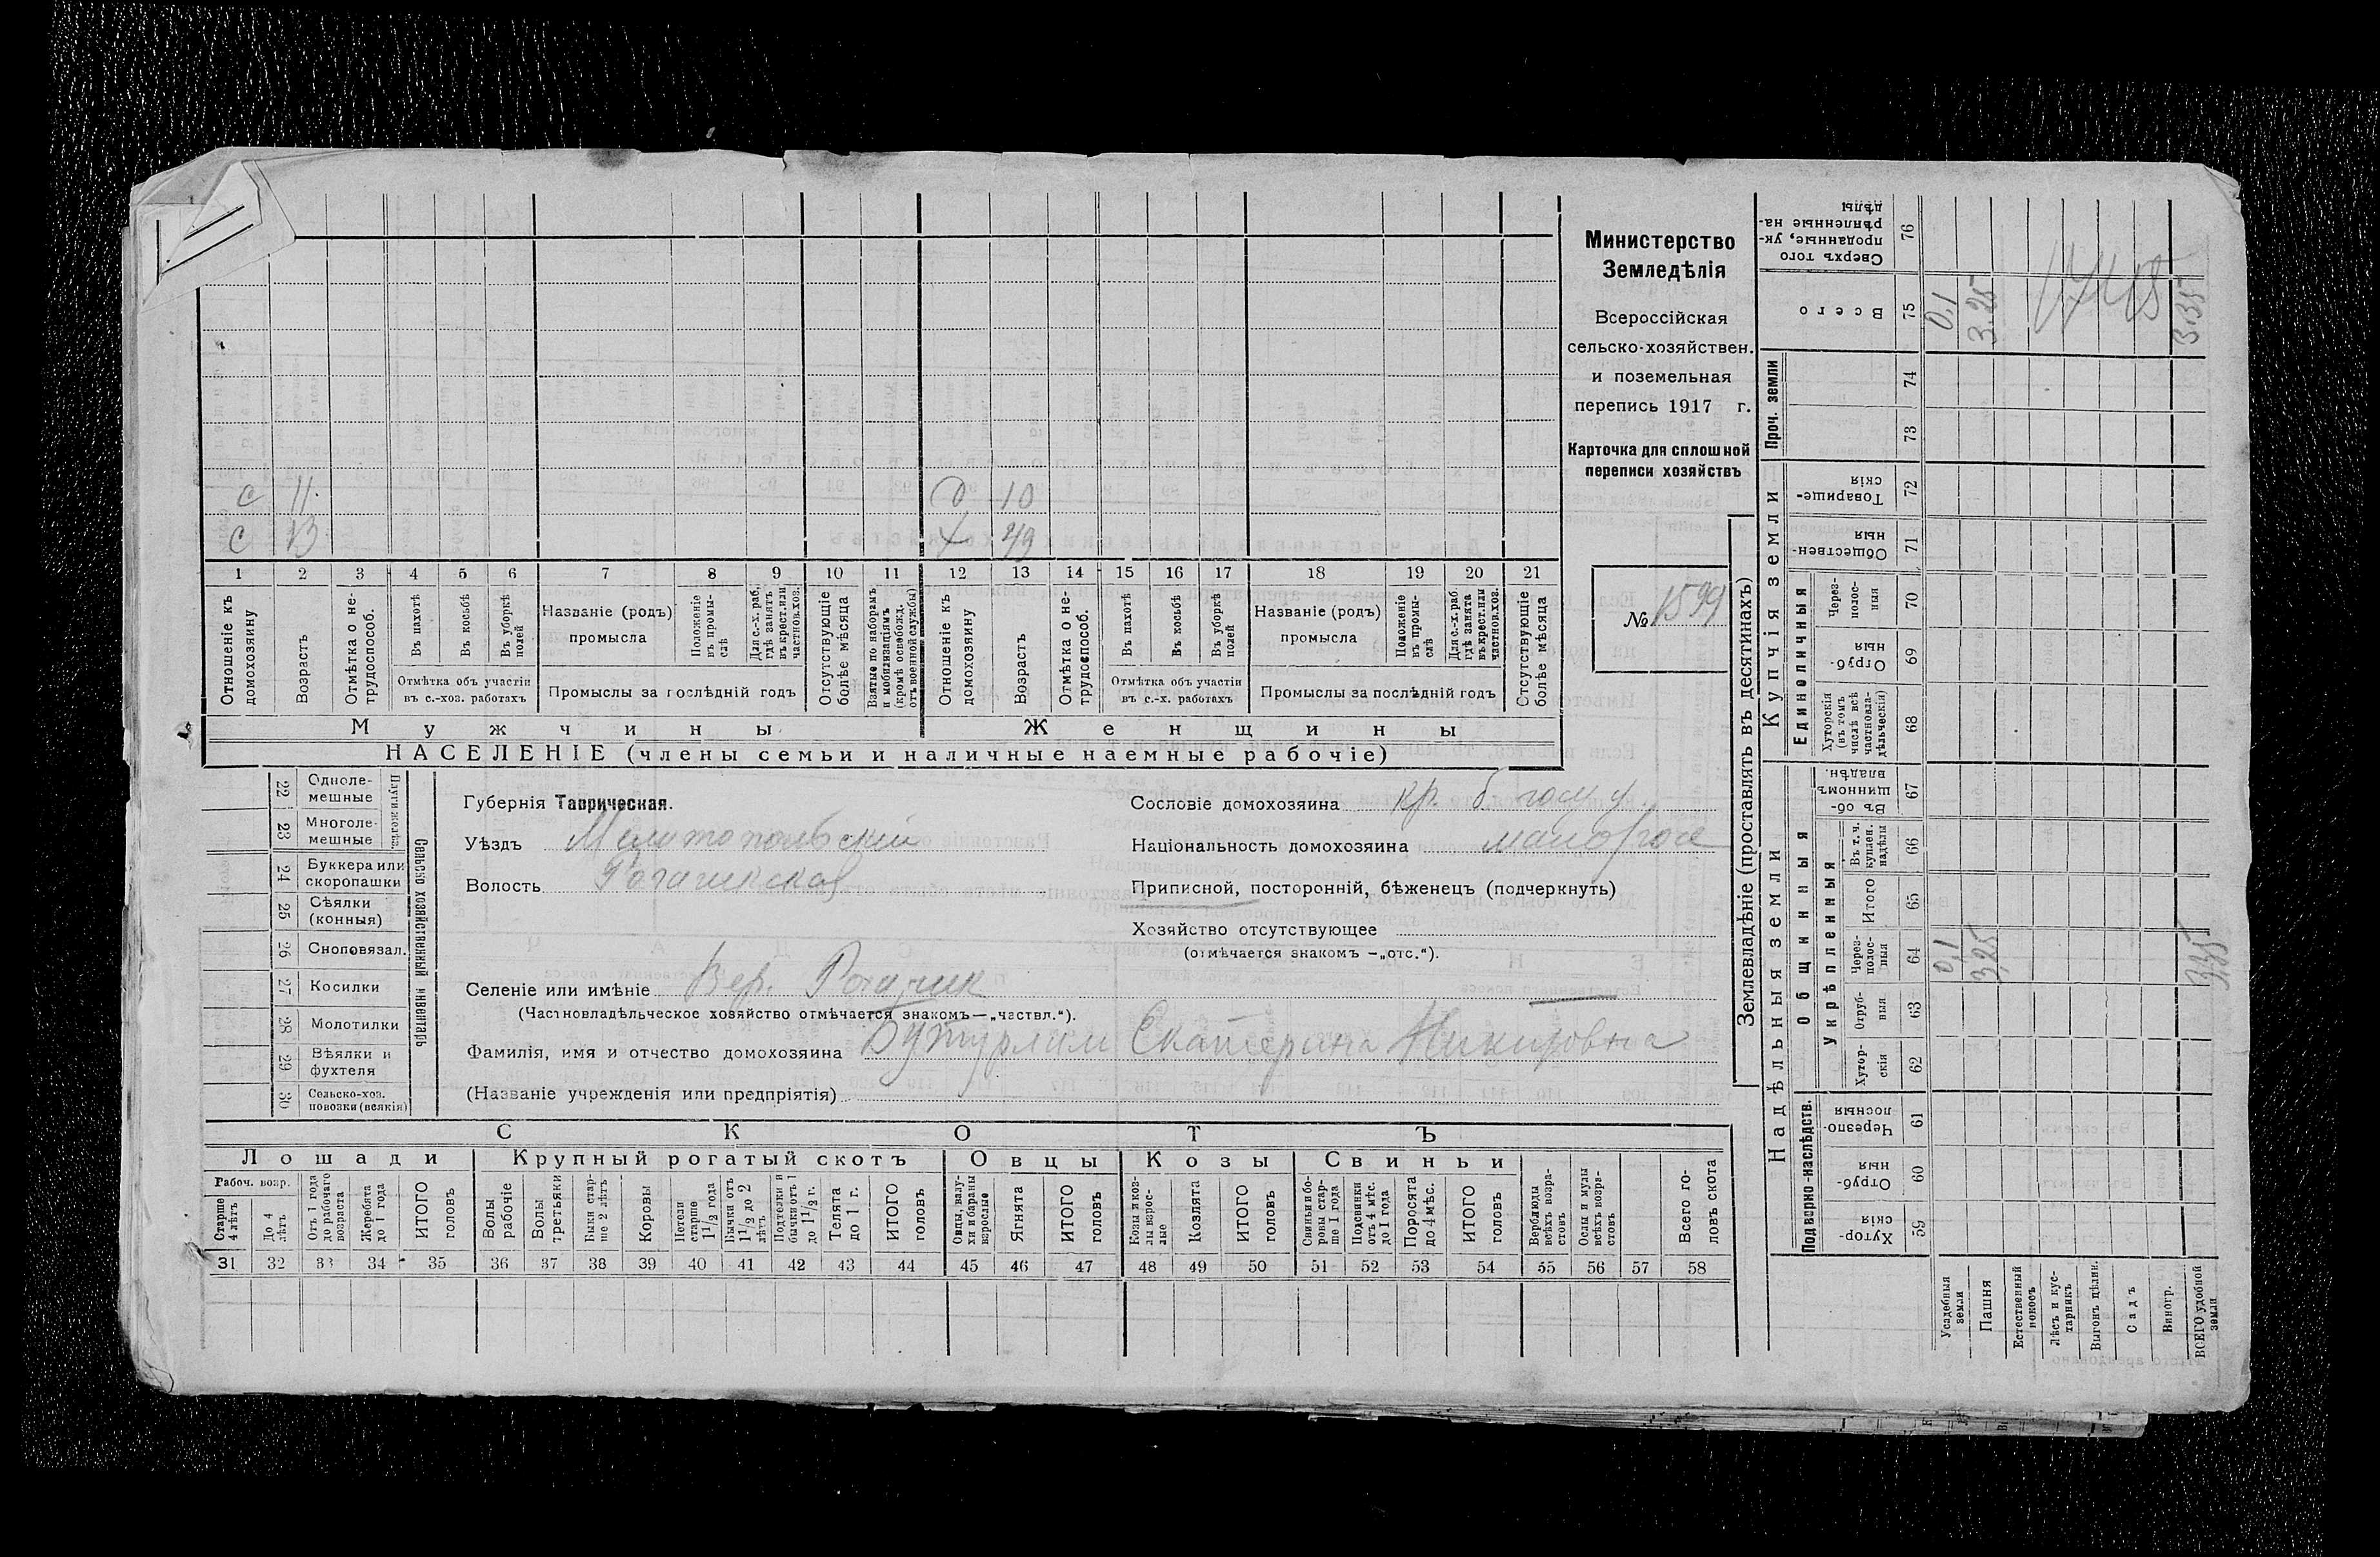 Министерство
Земледѣлія
Всероссійская
сельско-хозяйствен.
и поземельная
перепись 1917 г.
Карточка для сплошной
переписи хозяйствъ
№ 1599
с 11. д 10
с 13 х 49
1 2 3 4 5 6 7 8 9 10 11 12 13 14 15 16 17 18 19 20 21
Отношеніе къ домохозяину
Возрастъ
Отмѣтка о не-трудоспособ.
Въ пахотѣ
Въ косьбѣ
Въ уборкѣ полей
Отмѣтка объ участіи въ с.-хоз. работахъ
Названіе (родъ) промысла
Положеніе въ промы-слѣ
Для с.-х. раб. гдѣ занятъ въ крест. или частнов. хоз.
Промыслы за послѣдній годъ
Отсутствующіе болѣе мѣсяца
Взятые по наборамъ и мобилизаціямъ (кромѣ освобожд. отъ военной службы)
Отношеніе къ домохозяину
Возрастъ
Отмѣтка о не-трудоспособ.
Въ пахотѣ
Въ косьбѣ
Въ уборкѣ полей
Отмѣтка объ участіи въ с.-х. работахъ
Названіе (родъ) промысла
Положеніе въ промы-слѣ
Для с.-х. раб. гдѣ занята въ крест. или частнов. хоз.
Промыслы за послѣдній годъ
Отсутствующіе болѣе мѣсяца
Мужчины Женщины
НАСЕЛЕНІЕ (члены семьи и наличные наемные рабочіе)
22 Одноле-мешные
23 Многоле-мешные
Плуги желѣз.
24 Буккера или скоропашки
25 Сѣялки (конныя)
26 Сноповязал.
27 Косилки
28 Молотилки
29 Вѣялки и фухтеля
30 Сельско-хоз. повозки (всякія)
Сельско хозяйственный инвентарь
Губернія Таврическая.
Уѣздъ Мелитопольскій
Волость Рогачикская
Селеніе или имѣніе Вер. Рогачик
(Частновладѣльческое хозяйство отмѣчается знакомъ—„частвл.“).
Фамилія, имя и отчество домохозяина Бутурлим Екатерина Никитовна
(Названіе учрежденія или предпріятія)
Сословіе домохозяина кр. б
Національность домохозяина малорос
Приписной, посторонній, бѣженецъ (подчеркнуть)
Хозяйство отсутствующее
(отмѣчается знакомъ —„отс.“).
СКОТЪ
Лошади Крупный рогатый скотъ Овцы Козы Свиньи
Рабоч. возр.
Старше 4 лѣтъ
До 4 лѣтъ
Отъ 1 года до рабочаго возраста
Жеребята до 1 года
ИТОГО головъ
Волы рабочіе
Волы третьяки
Быки стар-ше 2 лѣтъ
Коровы
Нетели старше 1 1/2 года
Бычки отъ 1 1/2 до 2 лѣтъ
Подтелки и бычки отъ 1 до 1 1/2 г.
Телята до 1 г.
ИТОГО головъ
Овцы, валу-хи и бараны взрослые
Ягнята
ИТОГО головъ
Козы и коз-лы взрос-лые
Козлята
ИТОГО головъ
Свиньи и бо-ровы стар-ше 1 года
Подсвинки отъ 4 мѣс. до 1 года
Поросята до 4 мѣс.
ИТОГО головъ
Верблюды всѣхъ возра-стовъ
Ослы и мулы всѣхъ возра-стовъ
Всего го-ловъ скота
31 32 33 34 35 36 37 38 39 40 41 42 43 44 45 46 47 48 49 50 51 52 53 54 55 56 57 58
Землевладѣніе (проставлять въ десятинахъ)
Надѣльныя земли Купчія земли Проч. земли
Подворно-наслѣдств. Общинныя Единоличныя
Укрѣпленныя
Хутор-скія 59
Отруб-ныя 60
Черезпо-лосныя 61
Хутор-скія 62
Отруб-ныя 63
Через-полос-ныя 64 0,1 3,25 3,35
Итого 65
Въ т. ч. куплен. надѣлы 66
Въ об-щинномъ владѣн. 67
Хуторскія (въ томъ числѣ всѣ частновла-дѣльческія) 68
Отруб-ныя 69
Через-полос-ныя 70
Обществен-ныя 71
Товарище-скія 72
73
74
Всего 75 0,1 3.25 3.35
Сверхъ того проданные, ук-рѣпленные на-дѣлы 76
Усадебныя земли
Пашня
Естественный покосъ
Лѣсъ и кус-тарникъ
Выгонъ цѣлин.
Садъ
Виногр.
ВСЕГО удобной земли